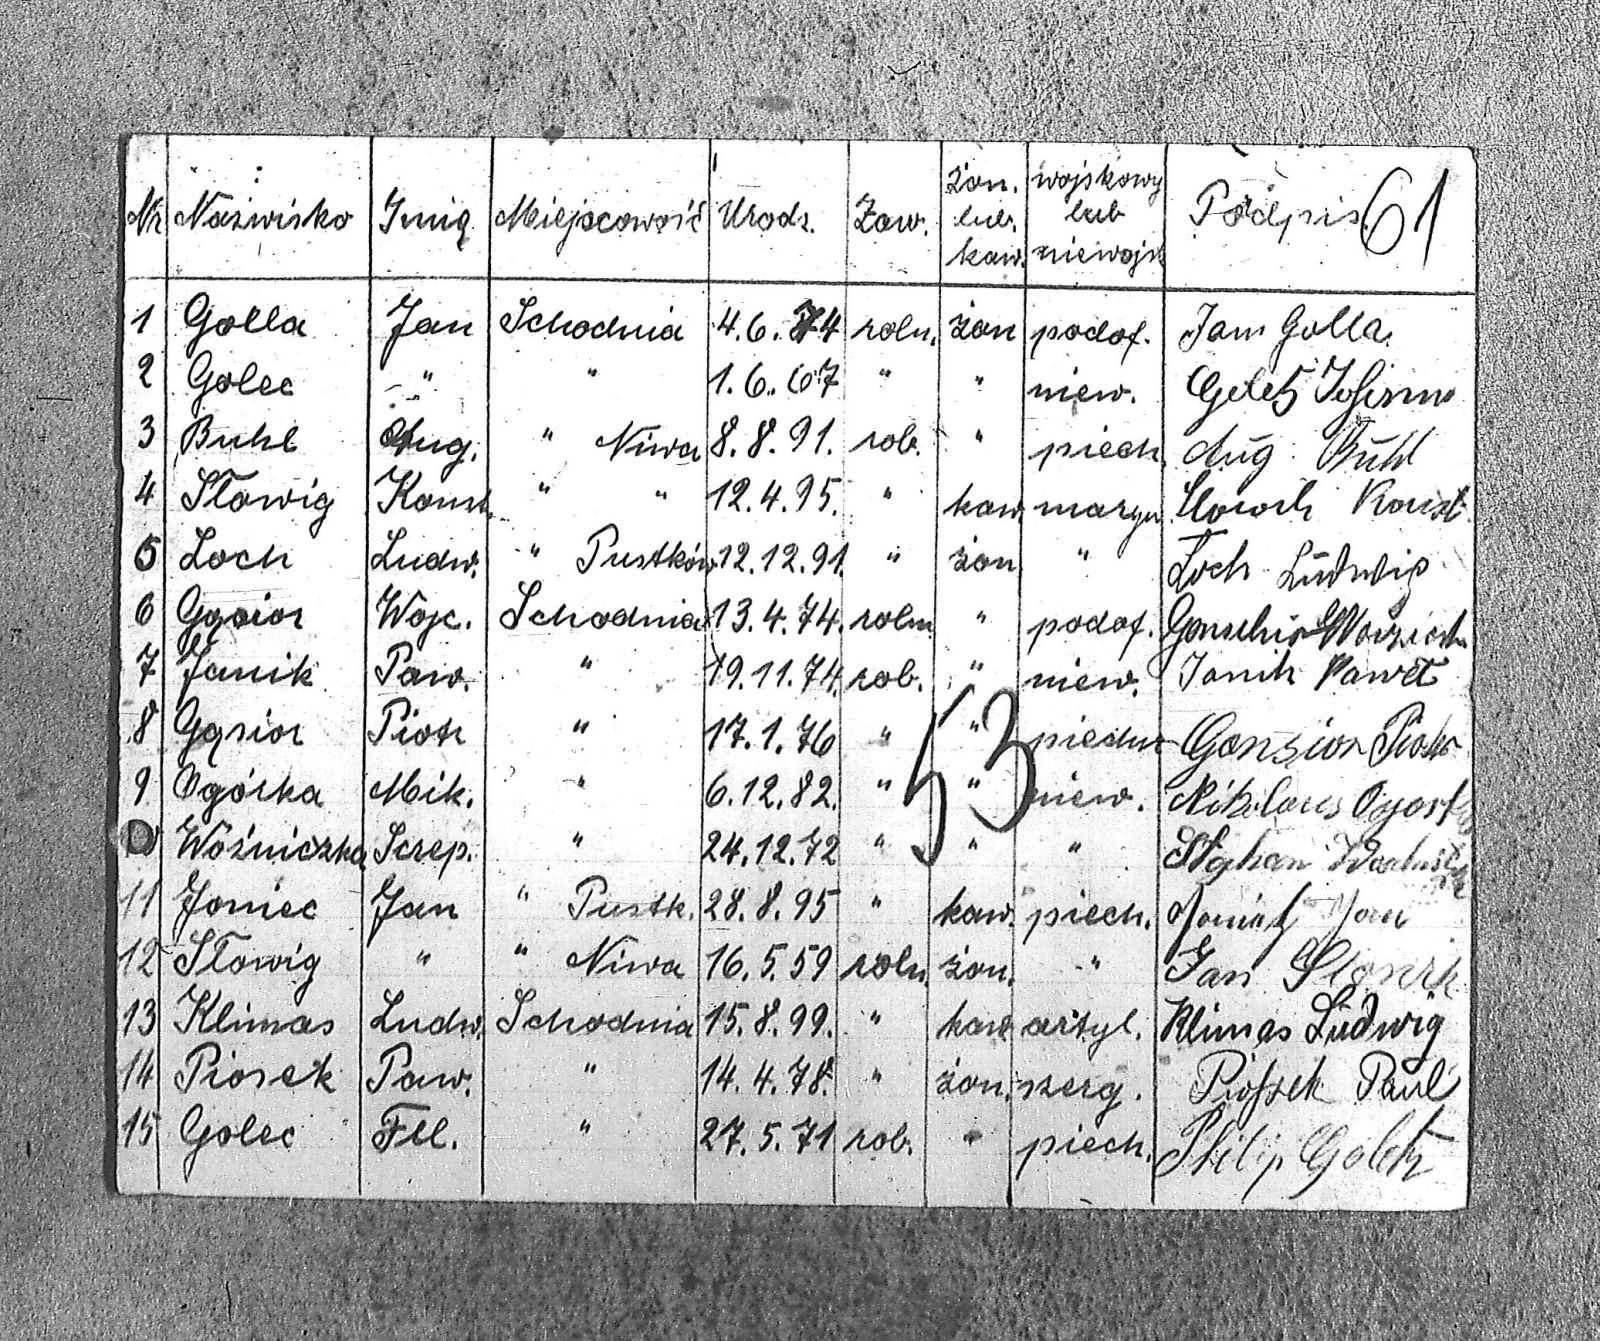 Nr Nazwisko Imię Miejscowość Urodz. Zaw. żon. lub. kaw. wojskowy lub niewojsk Podpis 61
1 Golla Jan Schodnia 4.6.74 roln. żon podof. Jan Golla
2 Golec " " 1.6.67 " " niew. Goletz
3 Buhl Aug. " Niwa 8.8.91. rob. " piech. Aug Buhl
4 Słowig Konst. " " 12.4.95. " kaw. maryn. Konst
5 Loch Ludw. " Pustków 12.12.91. " żon " Loch Ludwig
6 Gąsior Wojc. Schodnia 13.4.74. roln " podof.
7 Janik Paw. " 19.11.74. rob. " niew. Janik Paweł
8 Gąsior Piotr " 17.1.76 " " Gonsior Piotr
9 Ogórka Mik. " 6.12.82. " " niew. Nikolaus
10 Woźniczka Szcep. " 24.12.72 " " " Stephan
11 Joniec Jan " Pustk. 28.8.95 " kaw. piech. Jan
12 Słowig " " Niwa 16.5.59 roln. żon. " Jan
13 Klimas Ludw. Schodnia 15.8.99. " kaw artyl. Klimas Ludwig
14 Piosek Paw. " 14.4.78. " żon. szerg. Piossek Paul
15 Golec Fil. " 27.5.71 rob. " piech. Philip Goletz
53